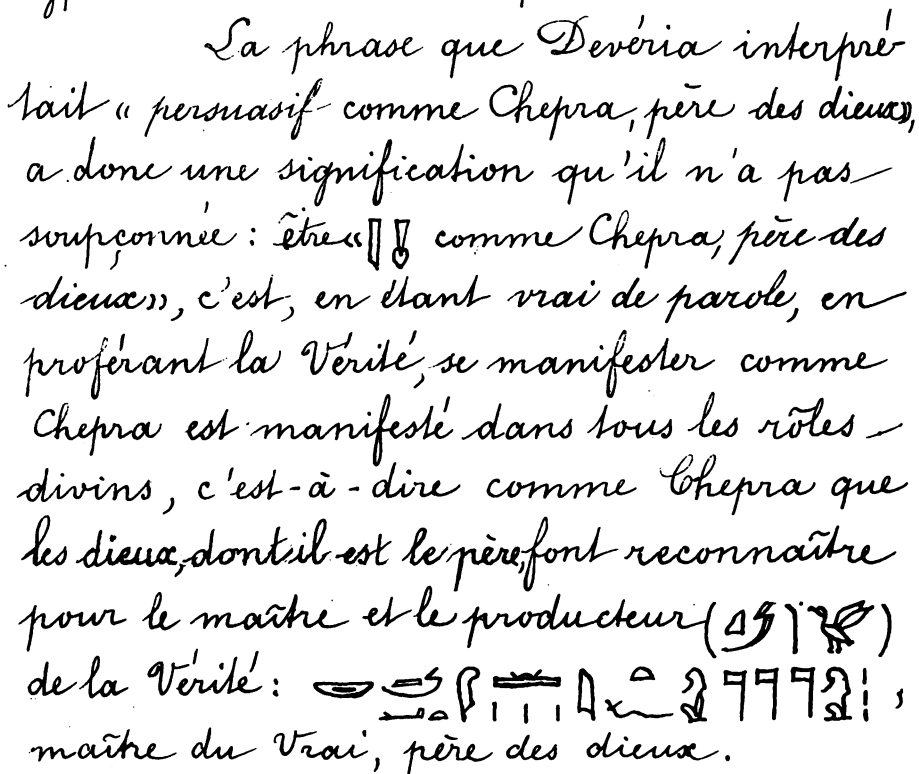 La phrase que Devéria interpré-
tait « persuasif comme Chepra, père des dieux»,
a donc une signification qu'il n'a pas
soupçonnée : être « comme Chepra, père des
dieux», c'est, en étant vrai de parole, en
proférant la Vérité, se manifester comme
Chepra est manifesté dans tous les rôles
divins, c'est-à-dire comme Chepra que
les dieux, dont il est le père, font reconnaître
pour le maître et le producteur ( )
de la Vérité : ,
maître du Vrai, père des dieux.